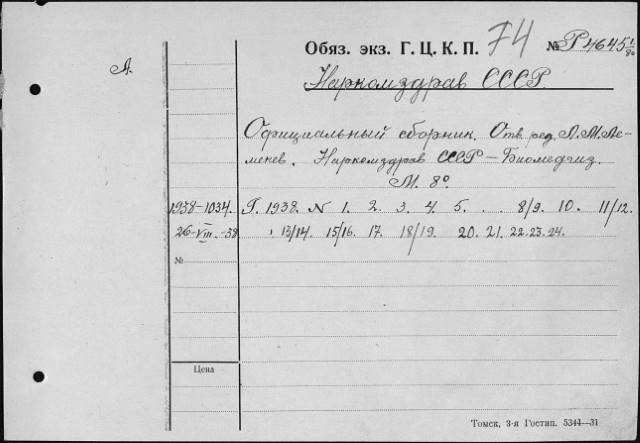 Обяз. экз. Г. Ц. К. П. 74 № Р4645 1/80
А.
Наркомздрав СССР.
Официальный сборник. Отв. ред. Л. М. Ле-
менев. Наркомздрав СССР – Биомедгиз.
М. 8°
1938-1034. Г. 1938. N 1. 2. 3. 4. 5. . . 8/9. 10. 11/12.
26-VIII.-38 13/14. 15/16. 17. 18/19. 20. 21. 22. 23. 24.
№
Цена
Томск, 3-я Гостип. 5344—31